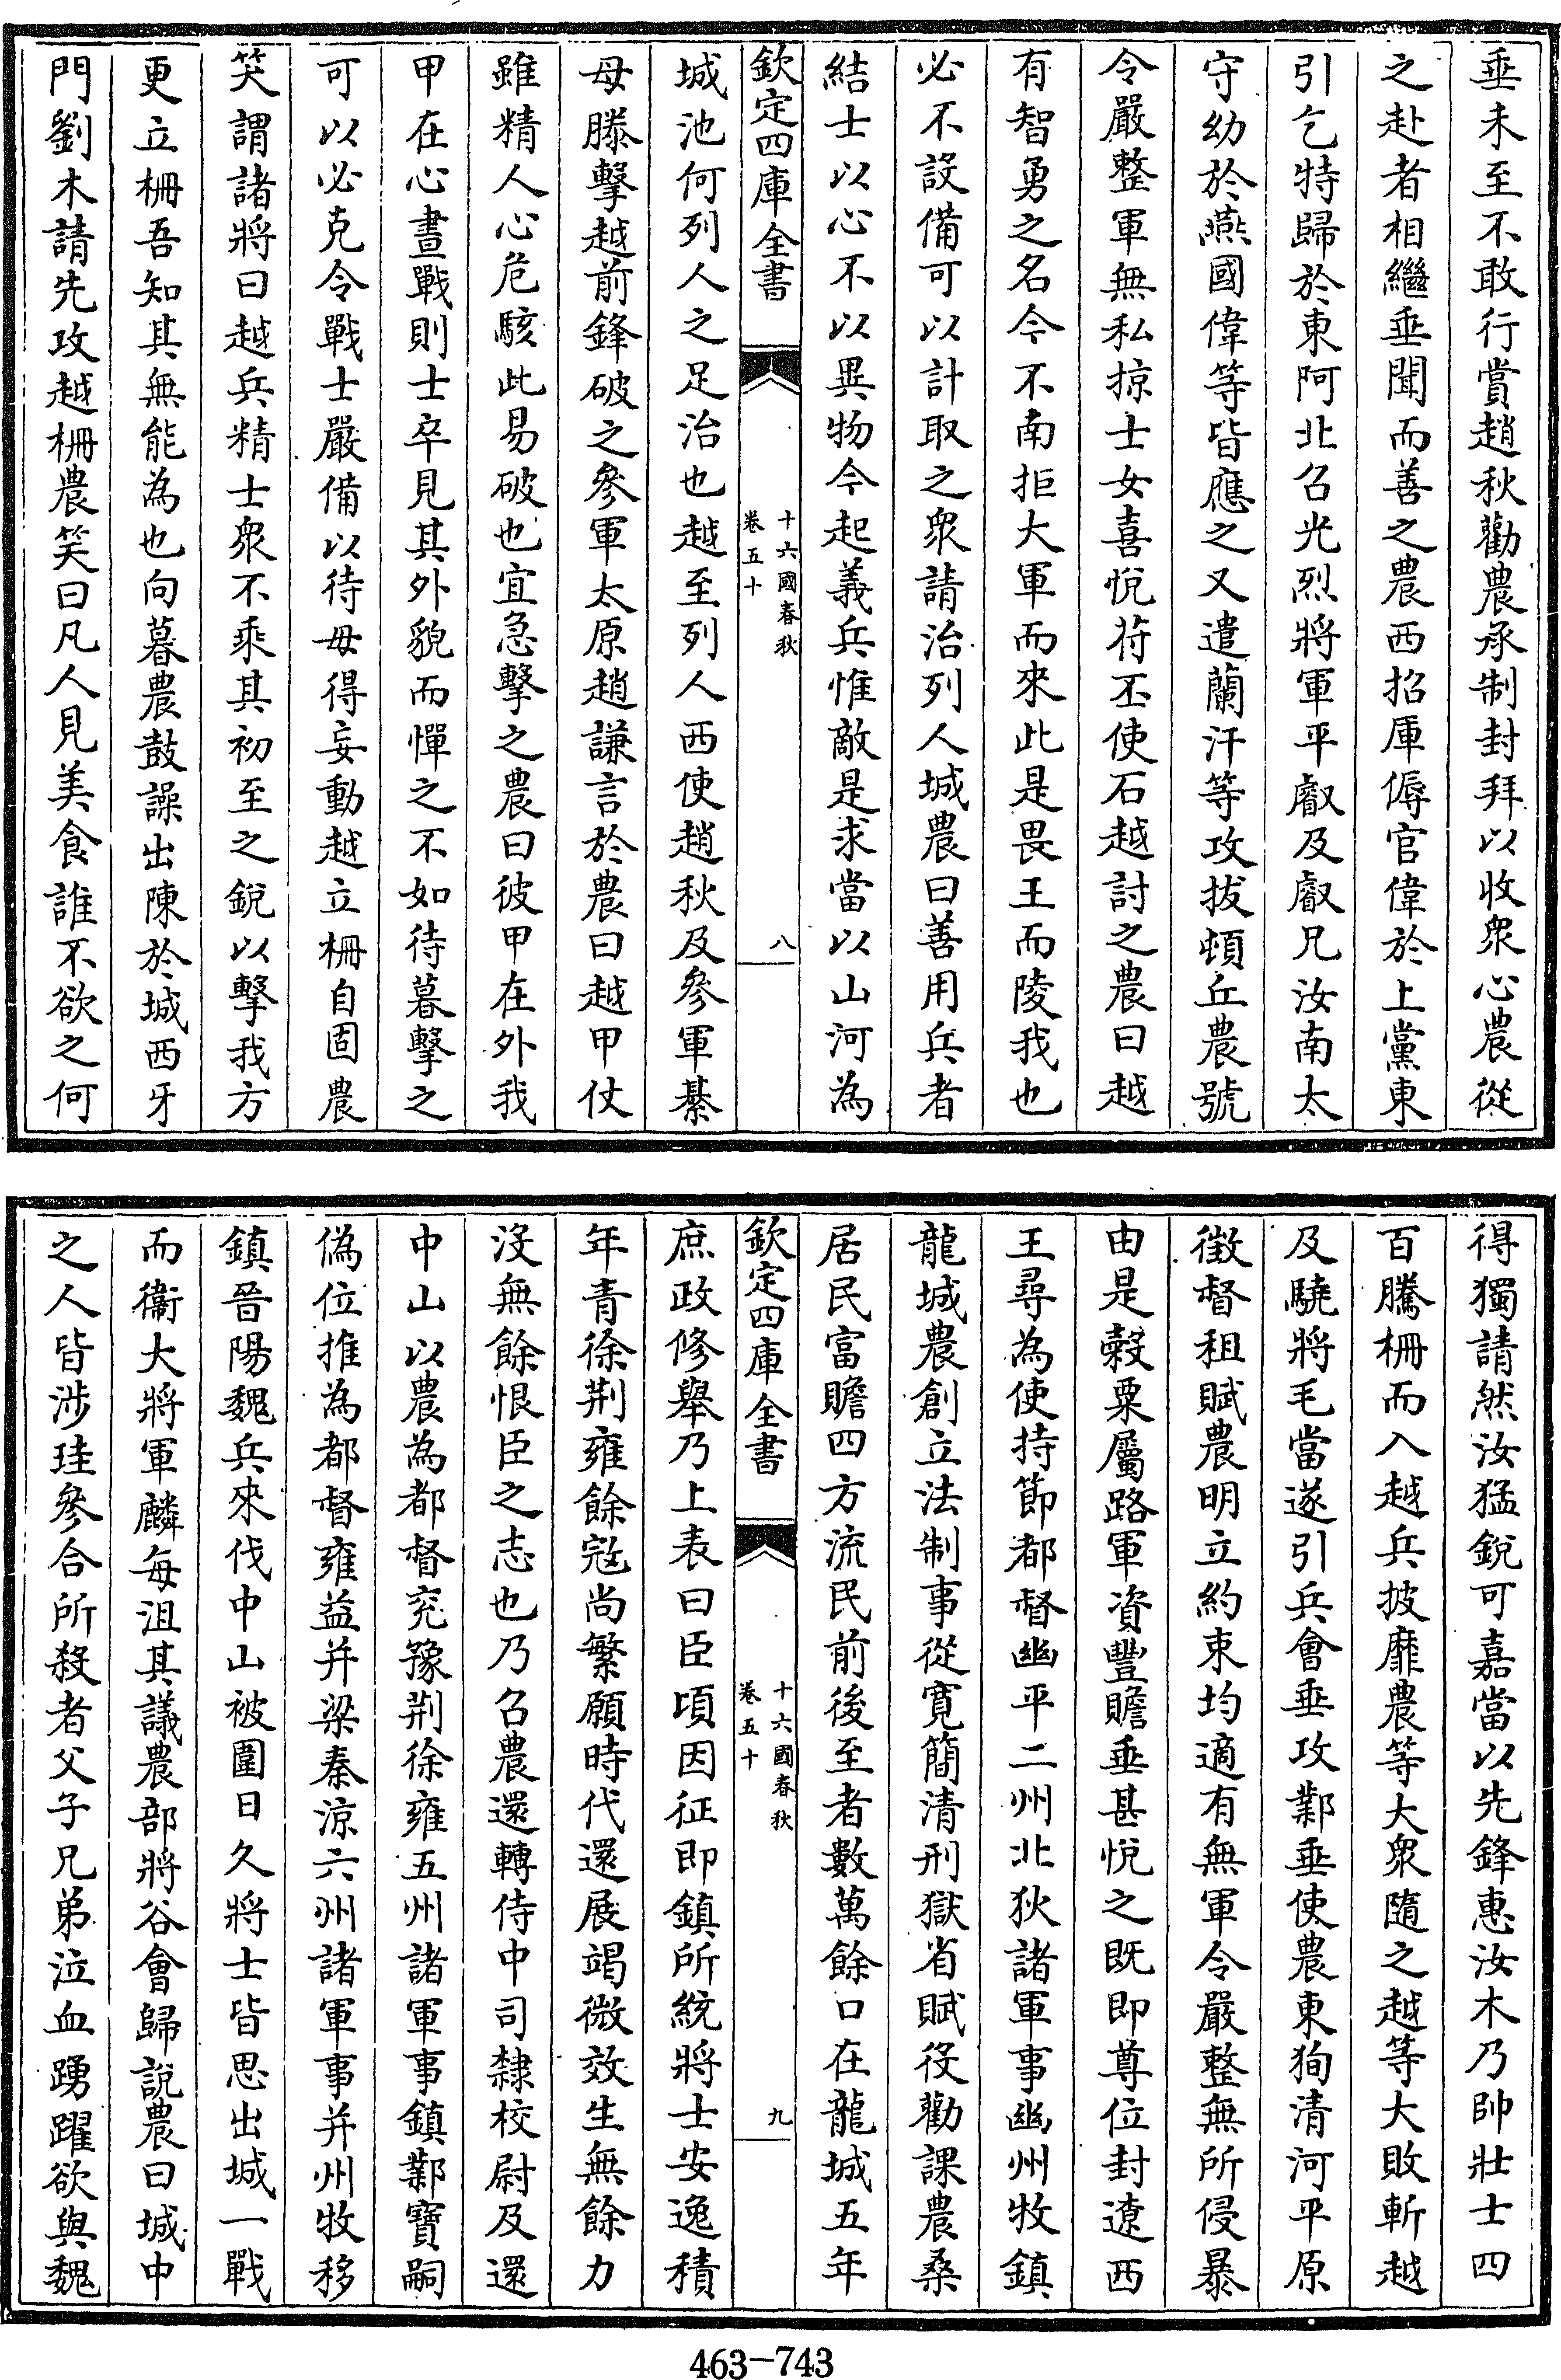 垂未至不敢行賞趙秋勸農承制封拜以收衆心農從
之赴者相繼垂聞而善之農西招庫傉官偉於上黨東
引乞特歸於東阿北召光烈將軍平叡及叡兄汝南太
守幼於燕國偉等皆應之又遣蘭汗等攻拔頓丘農號
令嚴整軍無私掠士女喜悅苻丕使石越討之農曰越
有智勇之名今不南拒大軍而來此是畏王而陵我也
必不設備可以計取之衆請治列人城農曰善用兵者
結士以心不以異物今起義兵惟敵是求當以山河為
欽定四庫全書
十六國春秋
卷五十
八
城池何列人之足治也越至列人西使趙秋及參軍綦
母滕擊越前鋒破之參軍太原趙謙言於農曰越甲仗
雖精人心危駭此易破也宜急擊之農曰彼甲在外我
甲在心晝戰則士卒見其外貌而憚之不如待暮擊之
可以必克令戰士嚴備以待毋得妄動越立柵自固農
笑謂諸將曰越兵精士衆不乘其初至之銳以擊我方
更立柵吾知其無能為也向暮農鼓譟出陳於城西牙
門劉木請先攻越柵農笑曰凡人見美食誰不欲之何
得獨請然汝猛銳可嘉當以先鋒惠汝木乃帥壯士四
百騰柵而入越兵披靡農等大衆隨之越等大敗斬越
及驍將毛當遂引兵會垂攻鄴垂使農東狥清河平原
徵督租賦農明立約束均適有無軍令嚴整無所侵暴
由是穀粟屬路軍資豐贍垂甚悅之既即尊位封遼西
王尋為使持節都督幽平二州北狄諸軍事幽州牧鎮
龍城農創立法制事從寬簡清刑獄省賦役勸課農桑
居民富贍四方流民前後至者數萬餘口在龍城五年
欽定四庫全書
十六國春秋
卷五十
九
庶政修舉乃上表曰臣頃因征即鎮所統將士安逸積
年青徐荆雍餘寇尚繁願時代還展竭微效生無餘力
沒無餘恨臣之志也乃召農還轉侍中司隸校尉及還
中山以農為都督兖豫荆徐雍五州諸軍事鎮鄴寶嗣
偽位推為都督雍益并梁秦涼六州諸軍事并州牧移
鎮晉陽魏兵來伐中山被圍日久將士皆思出城一戰
而衞大將軍麟每沮其議農部將谷會歸說農曰城中
之人皆涉珪參合所殺者父子兄弟泣血踴躍欲與魏
463-743